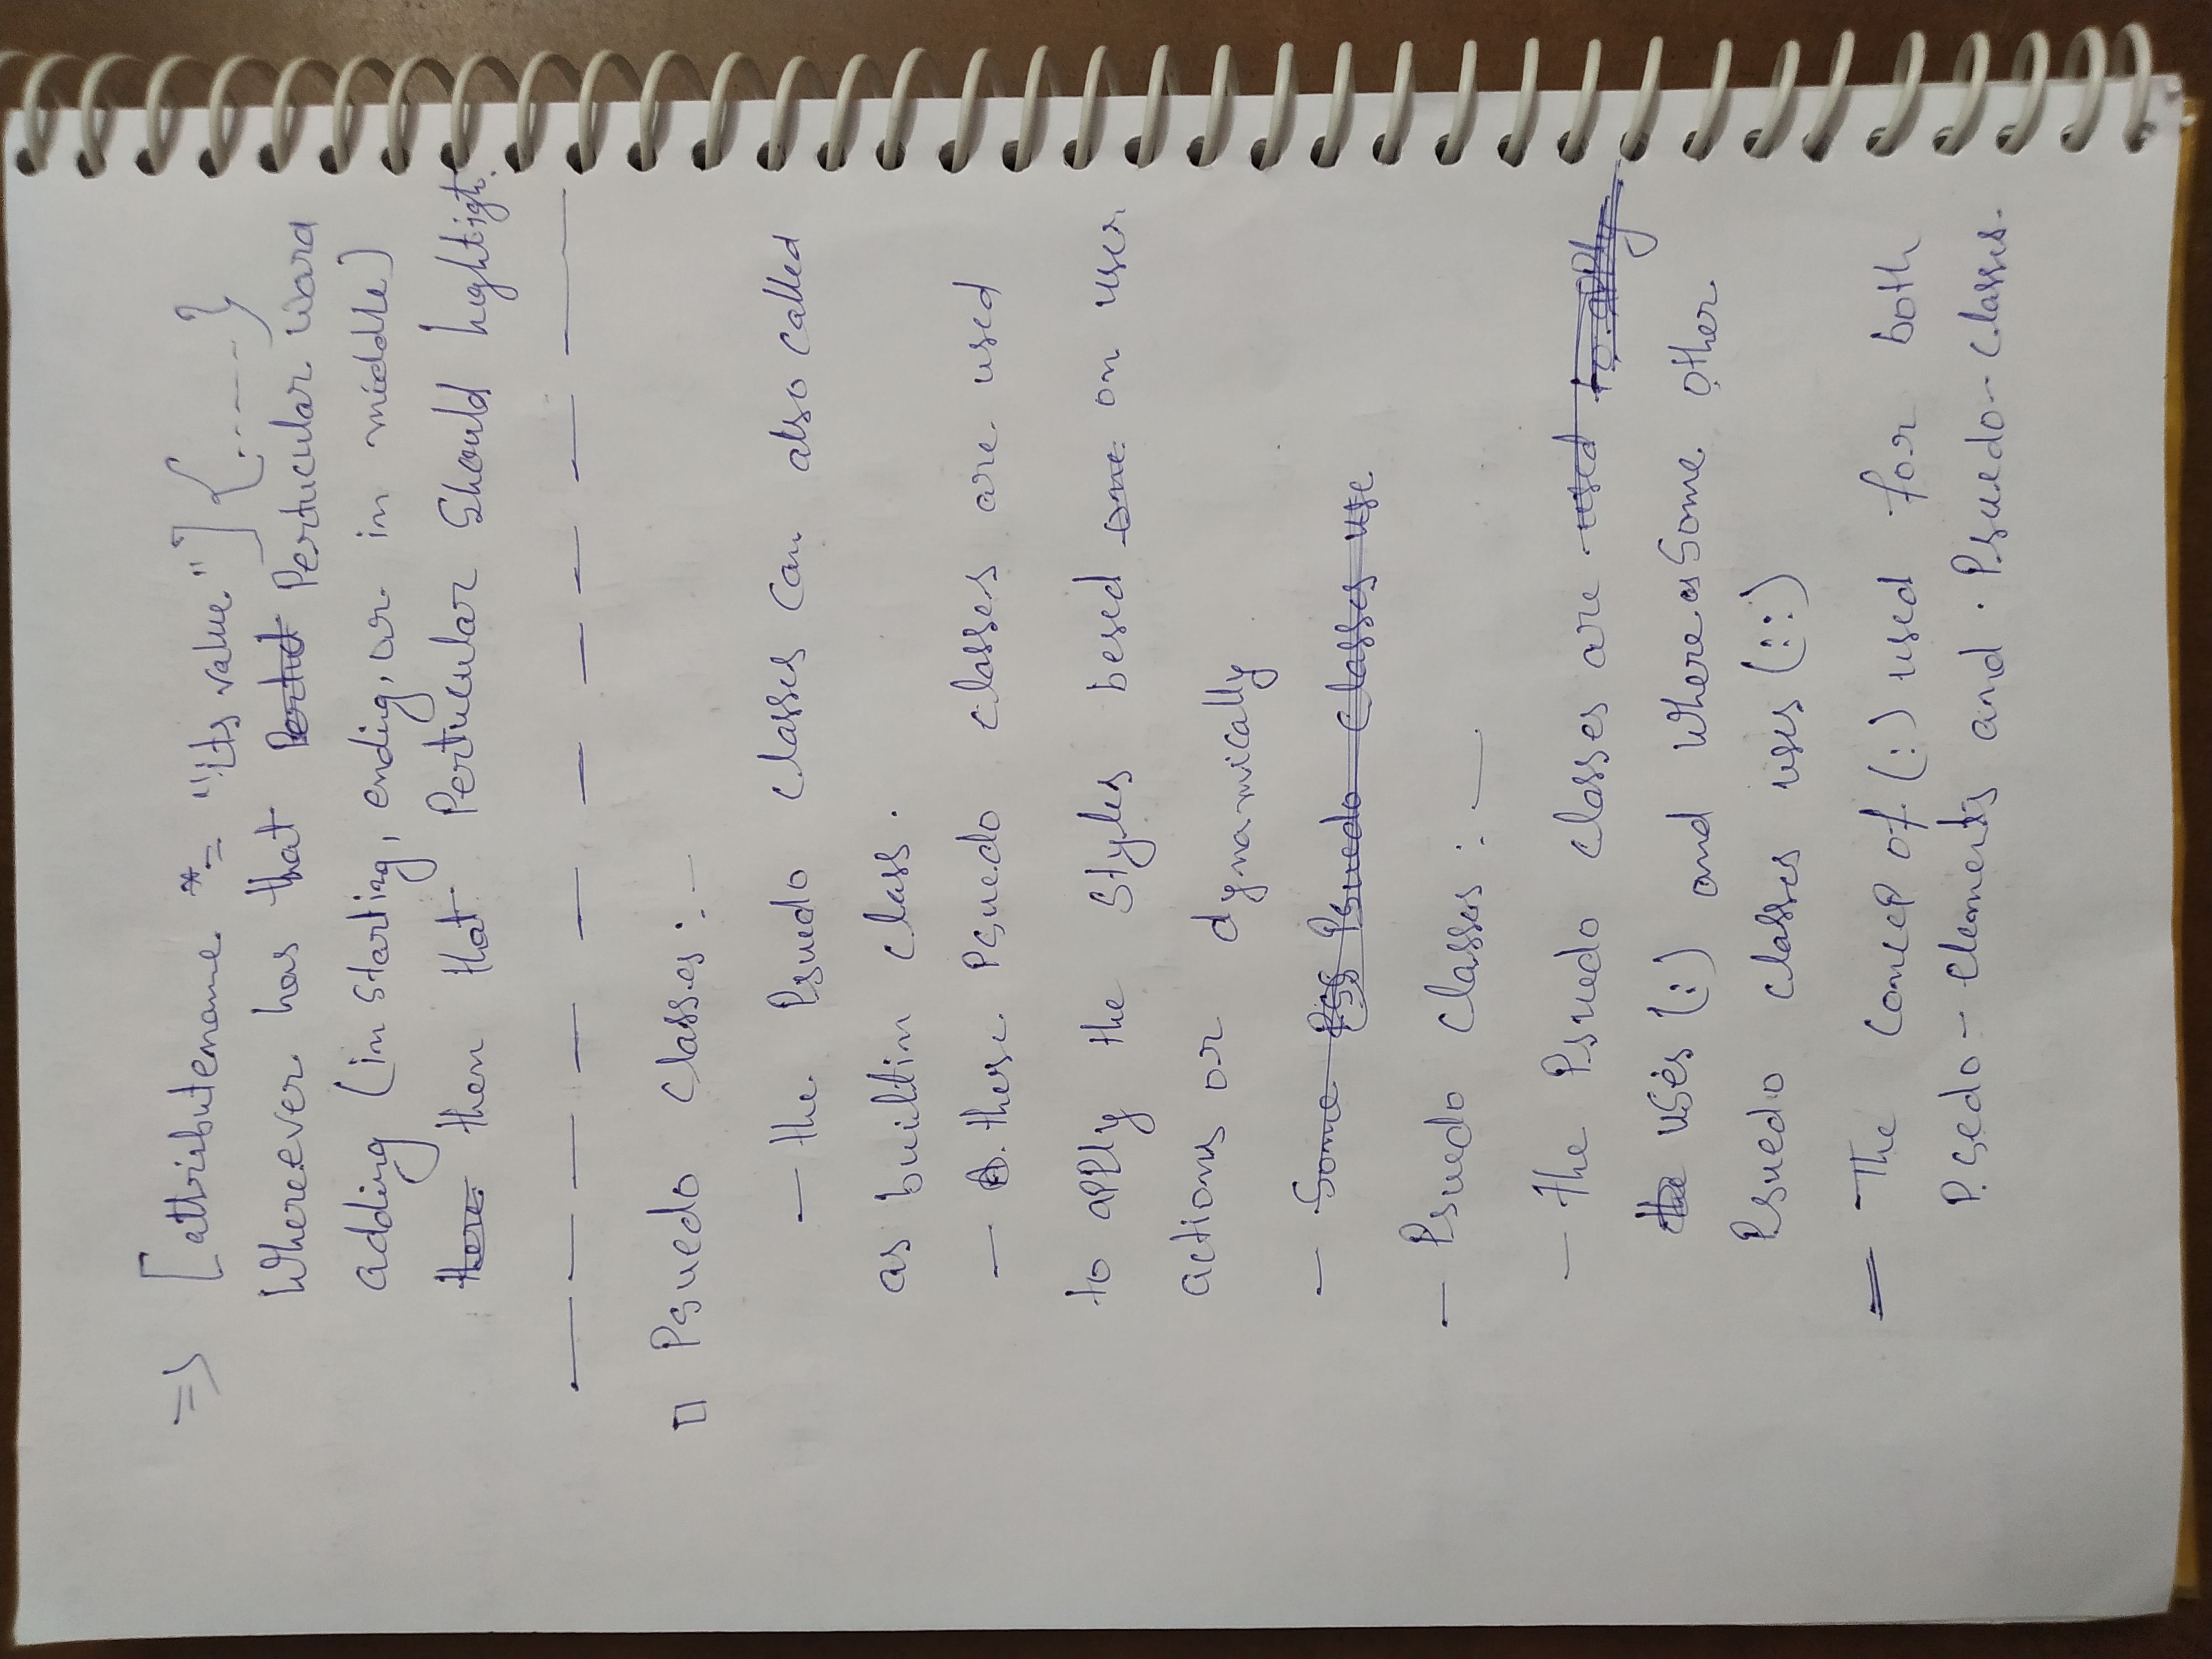 => [attributename *= "its value"] {-----}
Wherever has that Pertucular word
adding (in starting, ending, or in middle)
then that Pertucular Should hightligh.
□ Psuedo Classes :-
- the Psuedo Classes Can also called
as builtin class.
- these Psuedo classes are used
to apply the Styles besed on user
actions or dynamically
- Some Psuedo Classes use
- Psuedo Classes :-
- the Psuedo classes are used to apply
the uses (:) and where as Some other
Psuedo classes uses (::)
- The concep of (:) used for both
Psedo-elements and Psuedo-classes.